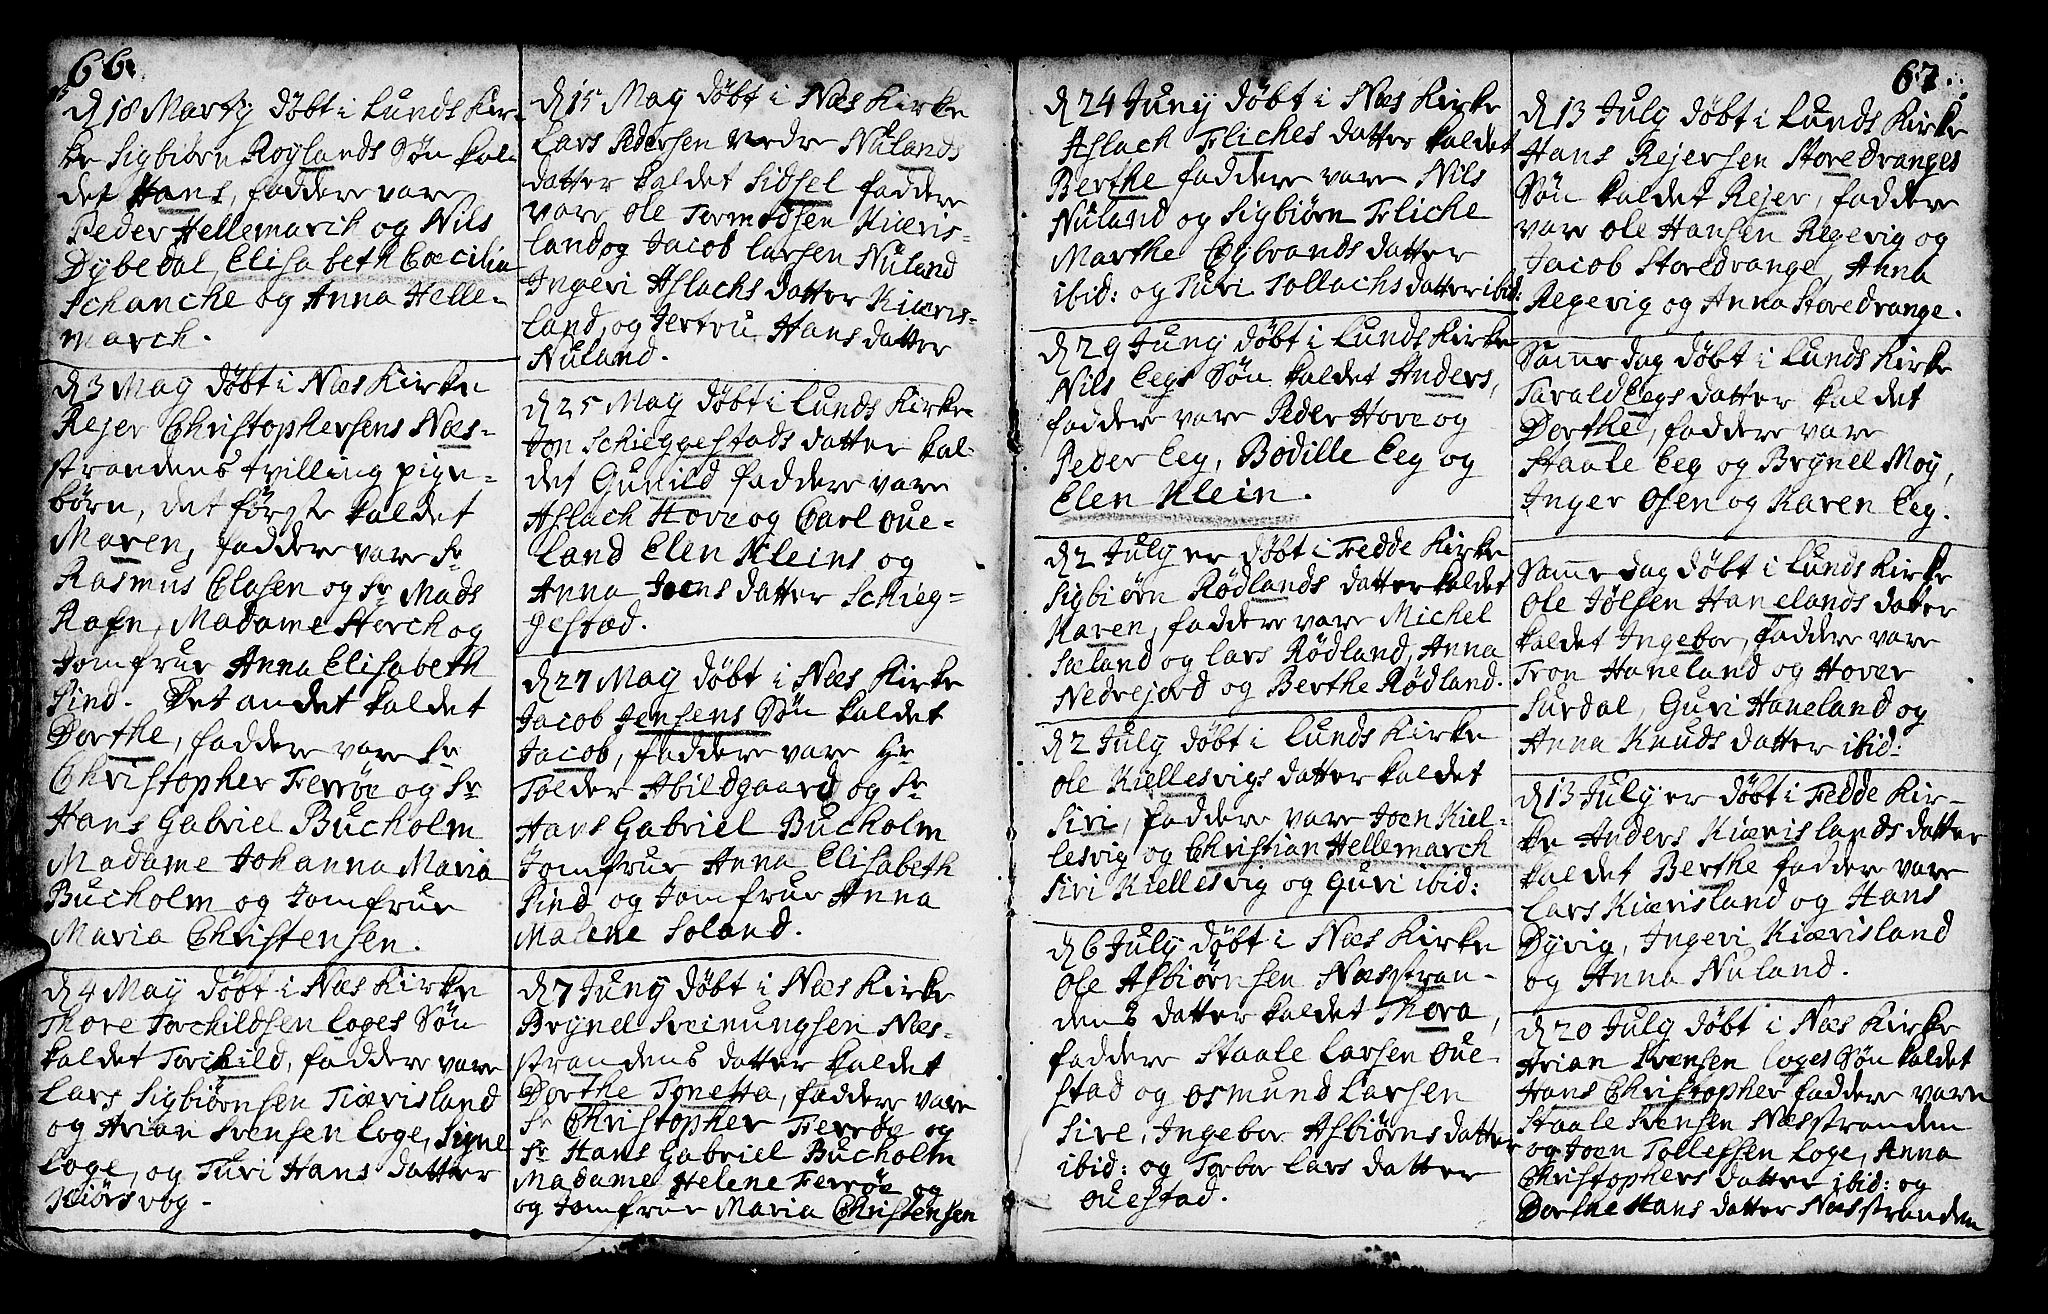 66.
d 18 Martij døbt i Lunds Kir-
ke Sigbiørn Røylands Søn kal-
det Hans, faddere vare
Peder Hellemarck og Nils
Dybedal, Elisabeth Cæcilia
Schanche og Anna Helle-
march.
d 3 May døbt i Næs Kirke
Rejer Christophersens Næs-
strandens tvilling pige-
børn, det første kaldet
Maren, faddere vare Sr
Rasmus Clasen og Sr Mads
Rafn, Madame Storch og
Jomfrue Anna Elisabeth
Pind. Det andet kaldet
Dorthe, faddere vare Sr
Christopher Ferrøe og Sr
Hans Gabriel Bucholm
Madame Johanna Maria
Bucholm og Jomfrue
Maria Christensen.
d 4 May døbt i Næs Kirke
Thore Torchildsen Loges Søn
kaldet Torchild, faddere vare
Lars Sigbiørnsen Kiærisland
og Arian Svensen Loge, Signe
Loge, og Turi Hans datter
Kiørsvog.
d 15 May døbt i Næs Kirke
Lars Pedersen nedre Nulands
datter kaldet Sidsel faddere
vare Ole Tormodsen Kiæris-
land og Jacob Larsen Nuland
Ingeri Aslachs datter Kiæris-
land, og Jertru Hans datter
Nuland.
d 25 May døbt i Lunds Kirke
Jon Schieggestads datter kal-
det Gunild faddere vare
Aslach Hove og Carl Oue-
land Elen Kleins og
Anna Joens datter Schieg-
gestad.
d 27 May døbt i Næs Kirke
Jacob Jensens Søn kaldet
Jacob, faddere vare Hr
Tolder Abildgaard og Sr
Hans Gabriel Bucholm
Jomfrue Anna Elisabeth
Pind og Jomfrue Anna
Malene Soland.
d 7 Juny døbt i Næs Kirke
Brynel Sveinungsen Næs-
strandens datter kaldet
Dorthe Tonetta, faddere vare
Sr Christopher Ferrøe og
Sr Hans Gabriel Bucholm
Madame Helene Ferrøe og
og Jomfrue Maria Christensen
67.
d 24 Juny døbt i Næs Kirke
Aslach Fliches datter kaldet
Berthe faddere vare Nils
Nuland og Sigbiørn Fliche
Marthe Egbrands datter
ibid: og Turi Tollachs datter ibid:
d 29 Juny døbt i Lunds Kirke
Nils Eegs Søn kaldet Anders,
faddere vare Peder Hove og
Peder Eeg, Bodille Eeg og
Elen Klein.
d 2 July er døbt i Fedde Kirke
Sigbiørn Rødlands datter kaldet
Karen, faddere vare Michel
Sæland og Lars Rødland, Anna
Nedrejord og Berthe Rødland.
d 2 July døbt i Lunds Kirke
Ole Kiellesvigs datter kaldet
Siri, faddere vare Joen Kiel-
lesvig og Christian Hellemarch
Siri Kiellesvig og Guri ibid:
d 6 July døbt i Næs Kirke
Ole Asbiørnsen Næsstran-
dens datter kaldet Thora,
faddere Staale Larsen Oue-
stad og Osmund Larsen
Sire, Ingebor Asbiørns datter
ibid: og Torbor Lars datter
Ouestad.
d 13 July døbt i Lunds Kirke
Hans Rejersen Storedranges
Søn kaldet Rejer, faddere
vare Ole Hansen Regevig og
Jacob Storedrange, Anna
Regevig og Anna Storedrange.
Same dag døbt i Lunds Kirke
Tarald Eegs datter kaldet
Dorthe, faddere vare
Staale Eeg og Brynel Moy,
Inger Osen og Karen Eeg.
Same dag døbt i Lunds Kirke
Ole Jølsen Hanelands datter
kaldet Ingebor, faddere vare
Tron Haneland og Hover
Surdal, Guri Haneland og
Anna Knuds datter ibid:
d 13 July er døbt i Fedde Kir-
ke Anders Kiærislands datter
kaldet Berthe faddere vare
Lars Kiærisland og Hans
Dyvig, Ingeri Kiærisland
og Anna Nuland.
d 20 July døbt i Næs Kirke
Arian Svensen Loges Søn kaldet
Hans Christopher faddere vare
Staale Svensen Næsstranden
og Joen Tollefsen Loge, Anna
Christophers datter ibid: og
Dorthe Hans datter Næsstranden